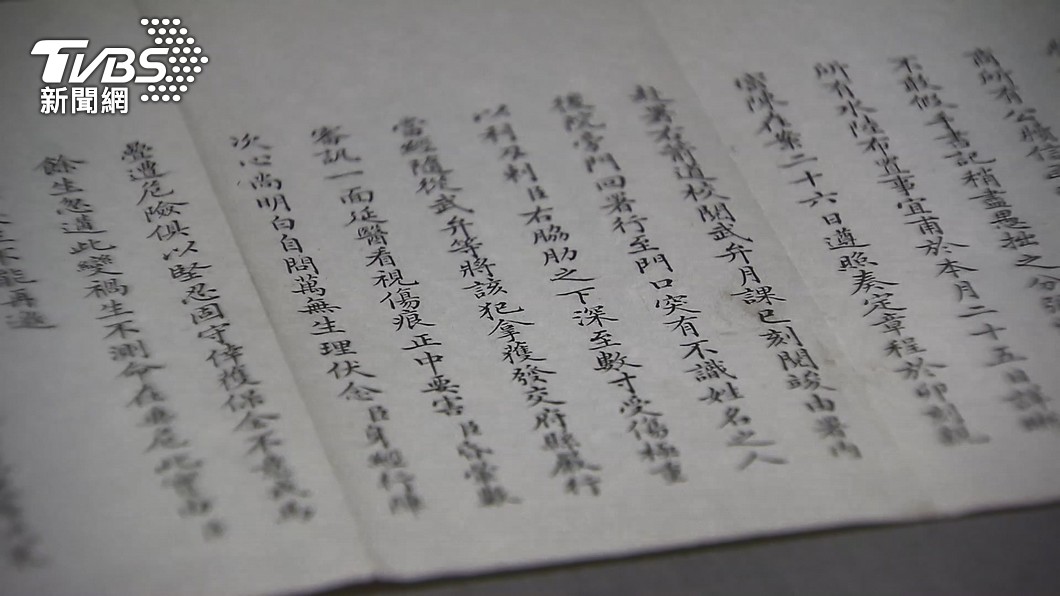 TVBS
新聞網
商所有公牘信
不敢假手書記稍盡愚拙之分
所有水陸布置事宜甫於本月二十五日詳晰
密陳在案二十六日遵照奏定章程於卯刻親
赴署右箭道校閱武弁月課巳刻閱竣由署內
後院旁門回署行至門口突有不識姓名之人
以利刃刺臣右脇肋之下深至數寸受傷極重
當經隨從武弁等將該犯拿獲發交府縣嚴行
審訊一面延醫看視傷痕正中要害臣昏暈數
次心尚明白自問萬無生理伏念臣身經行陣
疊遭危險俱以堅忍固守倖獲保全不意戎馬
餘生忽遘此變禍生不測命在垂危此實由臣
不能再邀